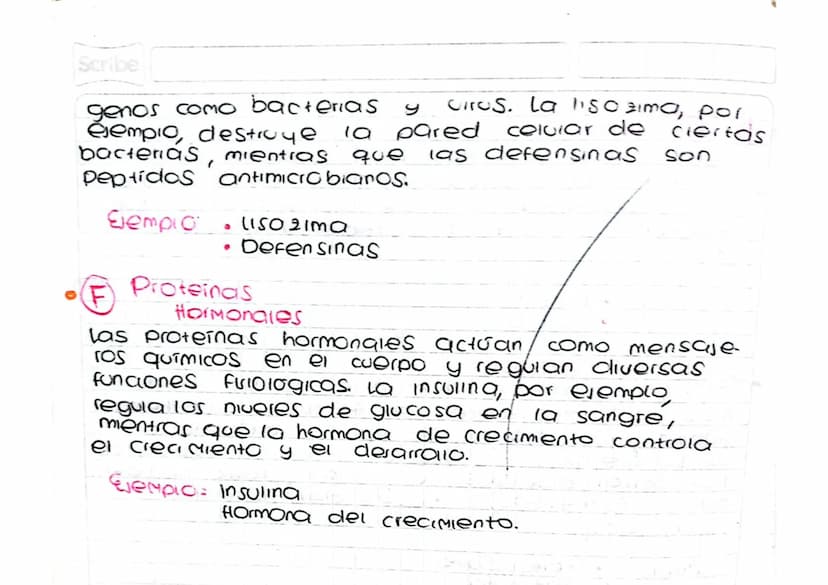 Scribe
genos como bacterias y virus. La lisozima, por
ejemplo, destruye la pared celular de ciertas
bacterias, mientras que las defensinas son
peptidos antimicrobianos.
Ejemplo: • Lisozima
• Defensinas
• F Proteínas
Hormonales
Las proteínas hormonales actúan como mensaje-
ros químicos en el cuerpo y regulan diversas
funciones fisiologicas. La insulina, por ejemplo,
regula los niveles de glucosa en la sangre,
mientras que la hormona de crecimiento controla
el crecimiento y el desarrollo.
Ejemplo: Insulina
Hormona del crecimiento.